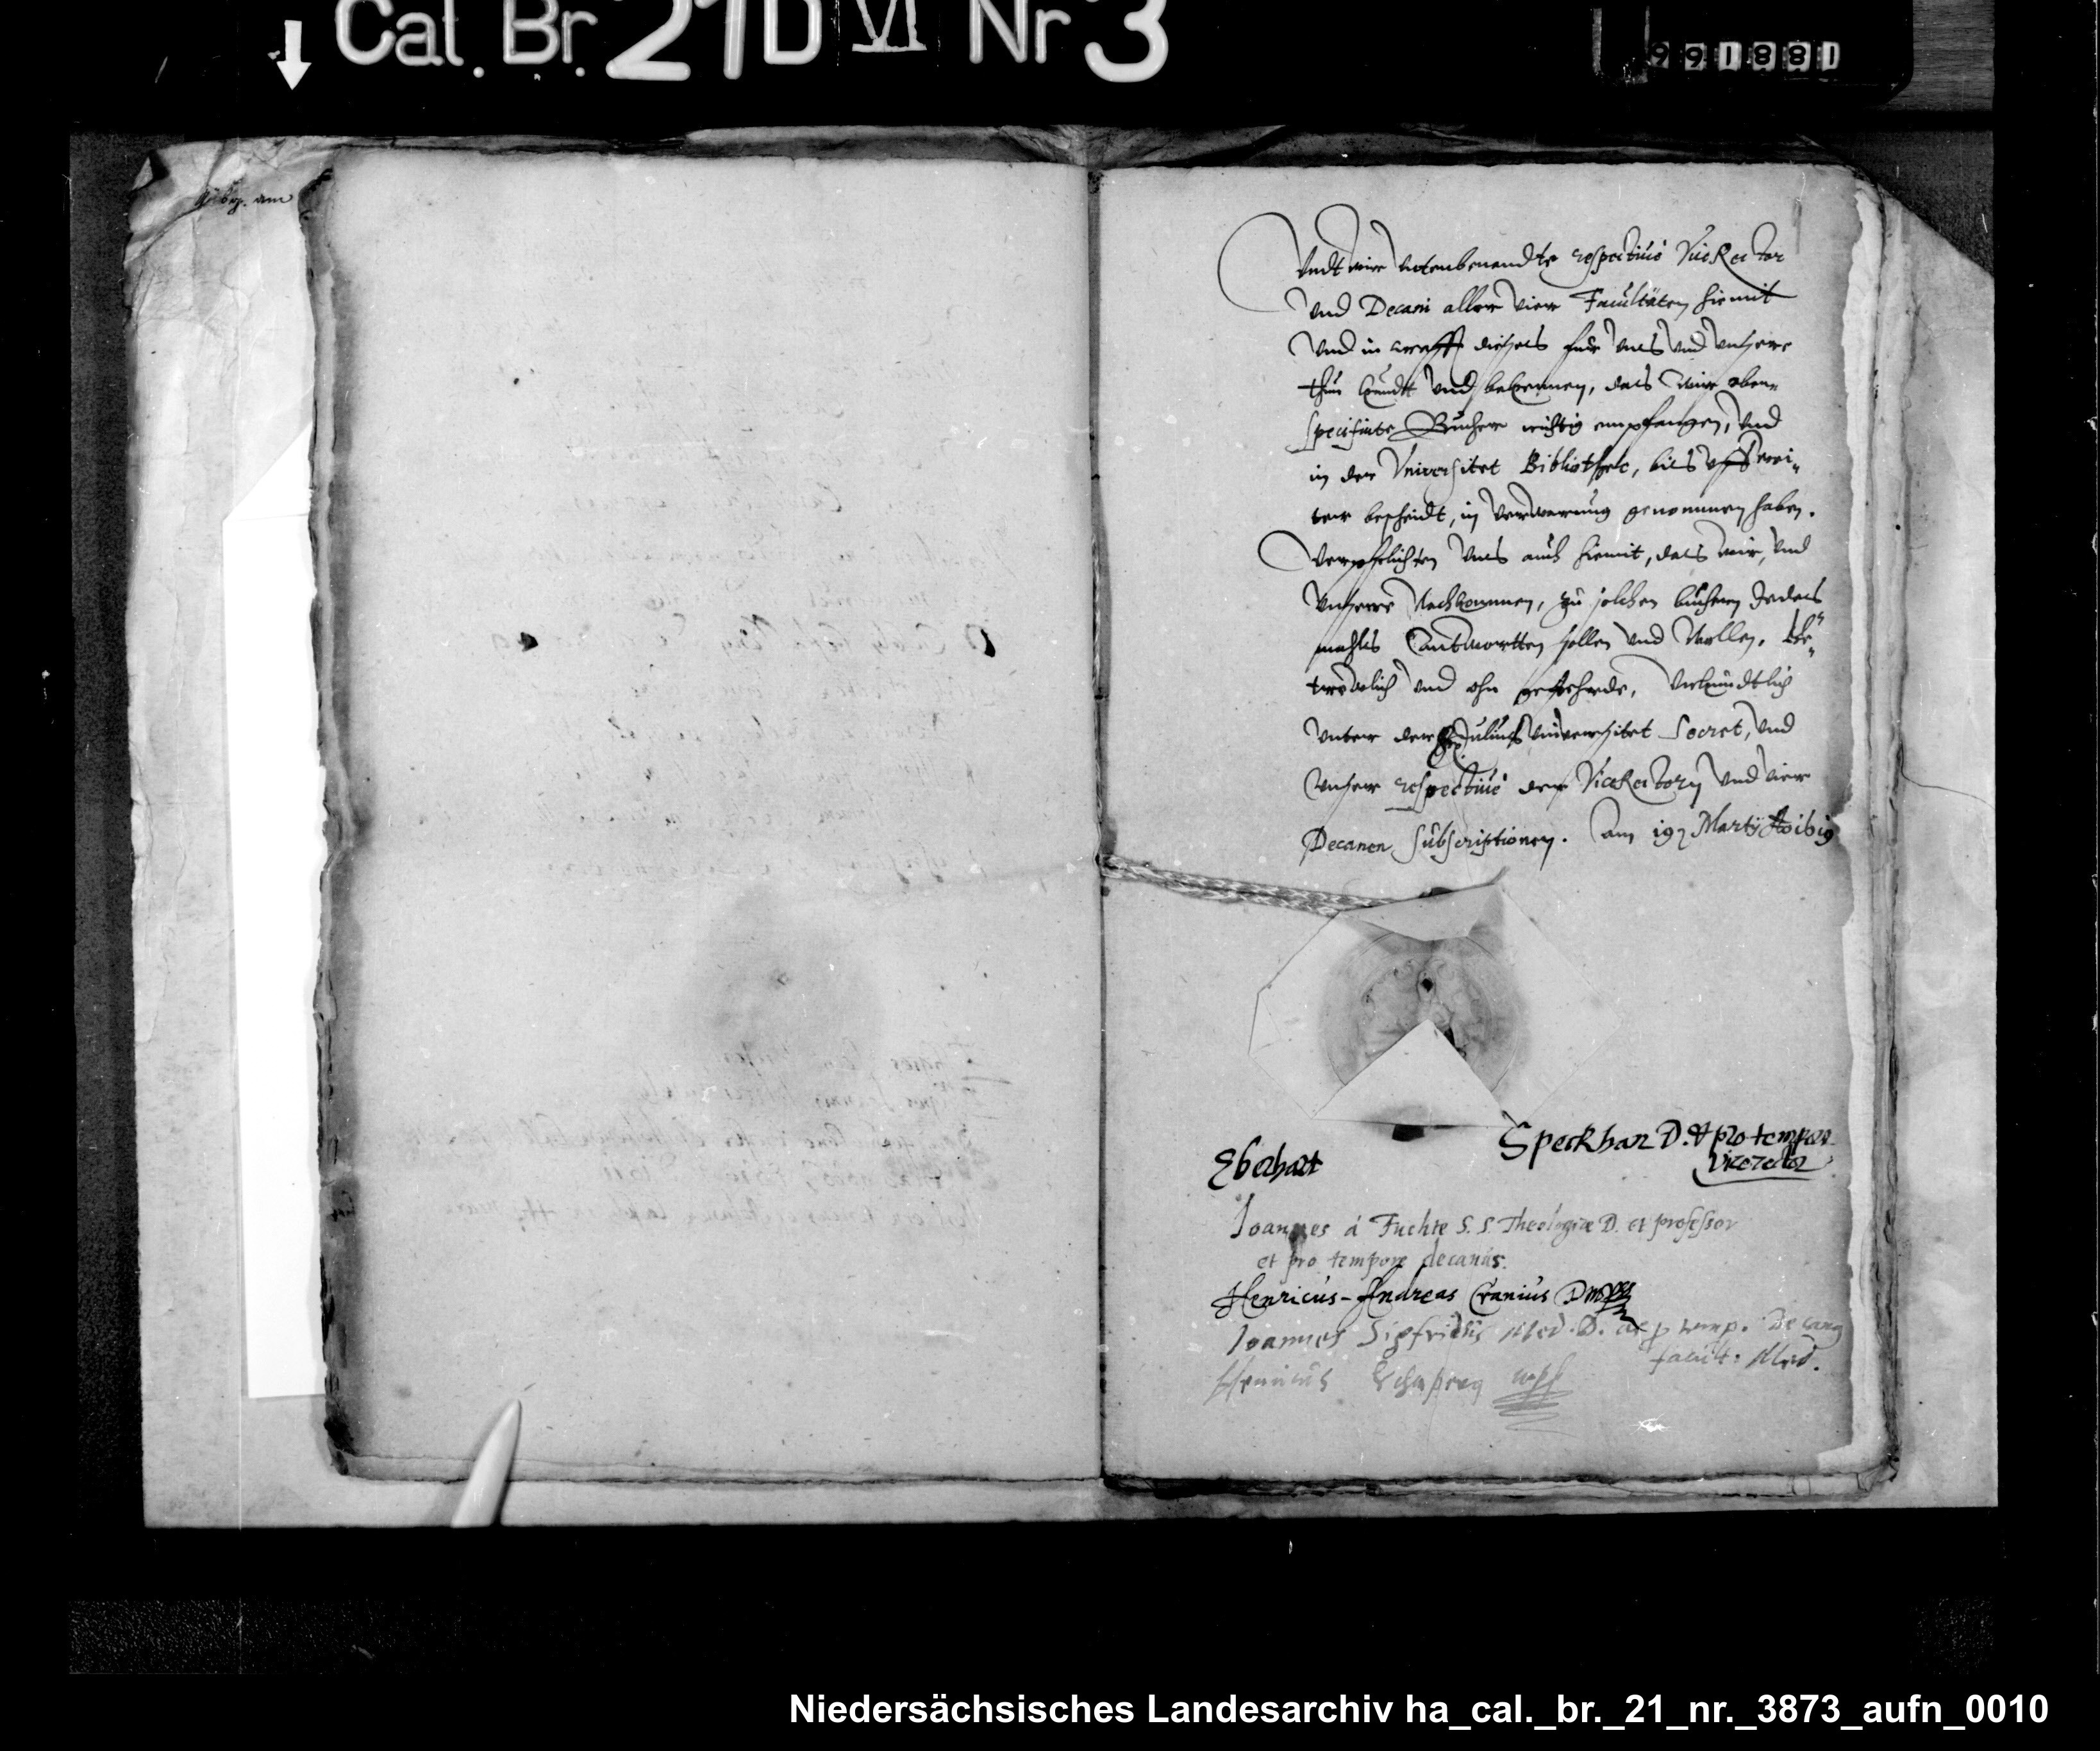 Cal. Br. 21 D VI Nr 3
991881
Vndt wir vntenbenandte respectiué ViceRector
vnd Decani aller vier Facultäten hiemit
vnd in crafft dieses für vns vnd vnsere
thun kundt vnd bekennen, das wir oben
specificirte Bücher richtig empfangen, vnd
in der Vniversitet Bibliothec, bis vff wei„
ter bescheidt, in verwarung genommen haben.
Verpflichten vns auch hiemit, das wir, vnd
vnsere Nachkommen, zu solchen büchern Jedes
mahls antwortten sollen vnd wollen.
trewlich vnd ohn gefehrde, vrkundtlich
vnter der Julius Vniversitet Secret, vnd
vnser respectiué der ViceRectorn vnd vier
Decanen Subscriptionen. am 19 Martij
Eberhart Speckhan D. & pro tempore
vicerector
Joannes á Fuchte S. S. Theologiæ D. et professor
et pro tempore decanus.
Henricus-Andreas Cranius D mpp
Joannes Sigfridus Med. D. ac p temp. Decanus
facult: Med.
Henricus
Niedersächsisches Landesarchiv ha_cal._br._21_nr._3873_aufn_0010